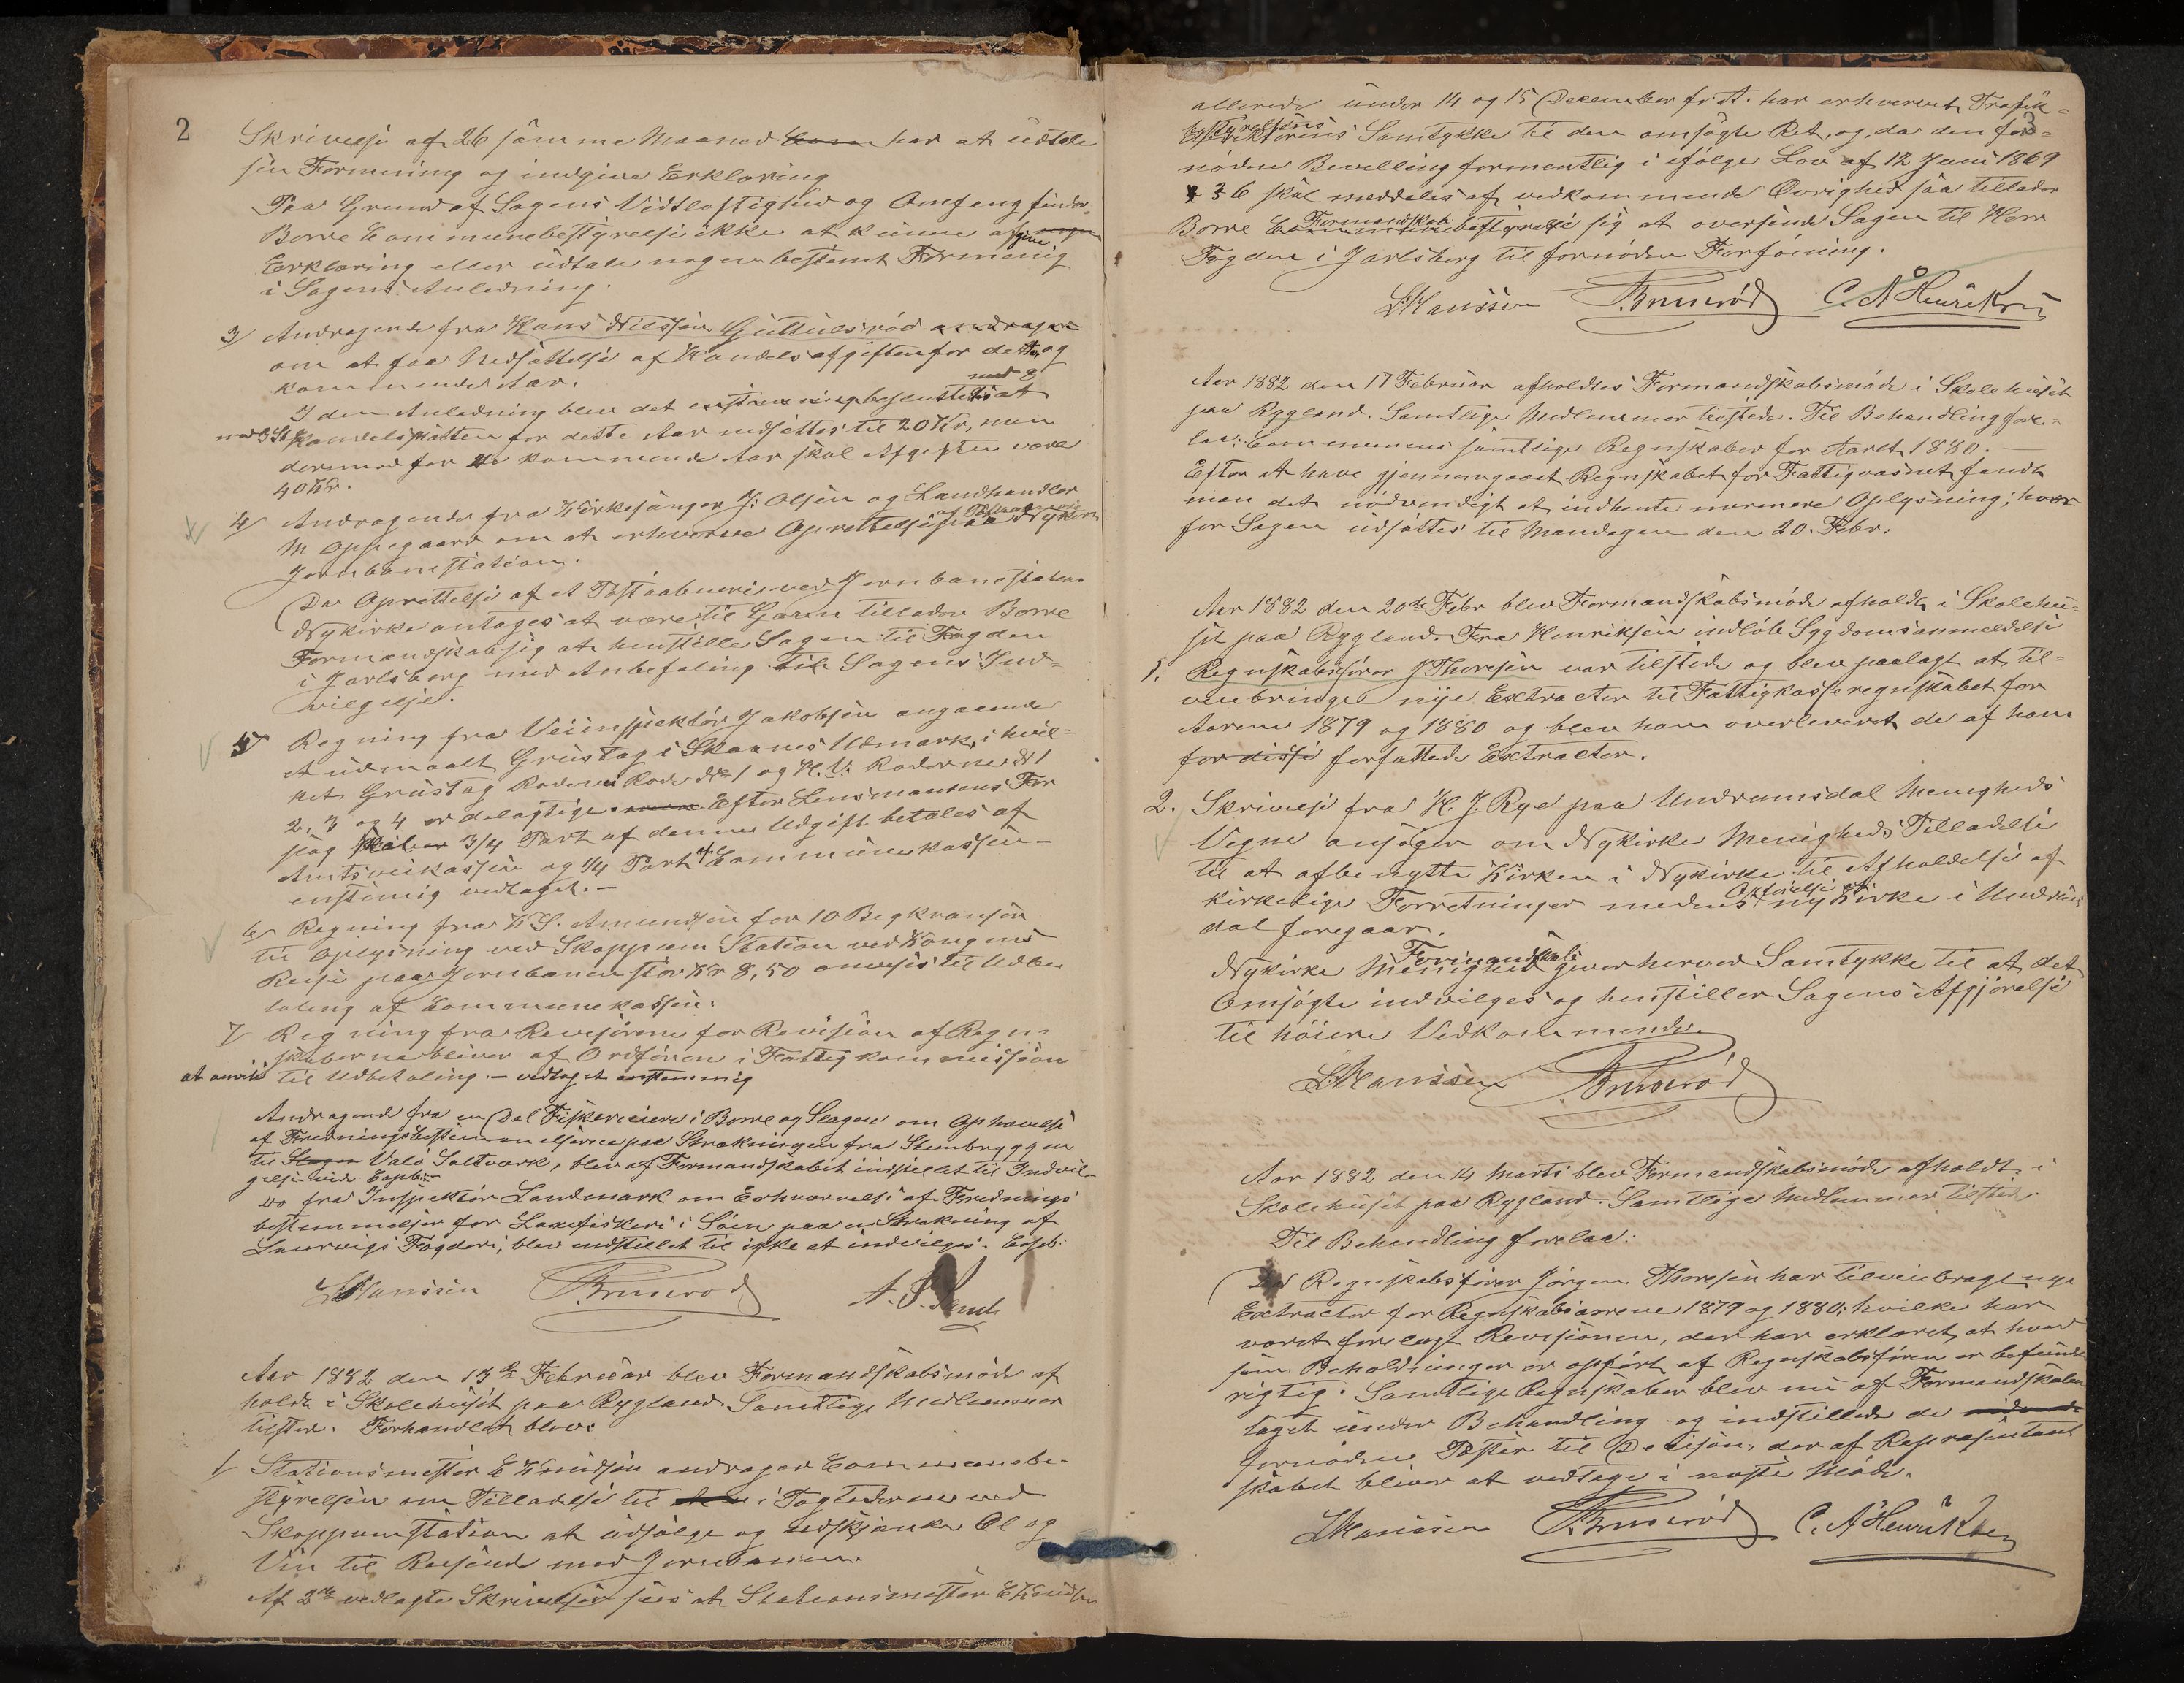 2
Skrivelse af 26 samme Maaned har at udtale
sin Formening og indgive Erklæring
Paa Grund af Sagens Vidtløftighed og Omfang finder
Borre Communebestyrelse ikke at kunne afgive
Erklæring eller udtale nogen bestemt Formening
i Sagens Anledning.
3/ Andragende fra Hans Nilssen Guttulsrød
om at faa Nedsættelse af Handelsafgiften for dette og
kommende Aar.
I den Anledning blev det besluttet at
Handelsskatten for dette Aar nedsættes til 20 Kr, men
dermed for de kommende Aar skal Afgiften være
40 Kr.
4/ Andragende fra Kirkesanger J. Olsen og Landhandler
M Oppegaard om at erhverve Oprettelse af paa Nykirke
Jernbanestation.
Da Oprettelse af et Postaabneri ved Jernbanestation
Nykirke antages at være til Gavn tillader Borre
Formandskab sig at henstille Sagen til Fogden
i Jarlsberg med Anbefaling til Sagens Ind-
vilgelse.
5/ Regning fra Veiinspektør Jakobsen angaaende
et udmaalt Grustag i Skaanes Udmark, i hvil-
ket Grustag Rode No 1 og H.V. Roderne No 1
2, 3 og 4 er delagtige Efter Lensmandens For
slag 3/4 Part af denne Udgift betales af
Amtsveikassen og 1/4 Part af Communekassen -
enstemig vedtaget. -
6/ Regning fra K S. Amundsen for 10 Begkranser
til Oplysning ved Skoppum Station ved Kongens
Reise paa Jernbanen stor Kr 8,50 anvises til Udbe
taling af Communekassen.
7/ Regning fra Revisorene for Revision af Regn-
skaberne bliver af Ordføren i Fattigkommission
at anvise til Udbetaling. - vedtaget enstemmig
Andragende fra en Del Fiskerieiere i Borre og Slagen om Ophævelse
af Fredningsbestemmelserne paa Strækningen fra Steinbryggen
til Valø Saltværk, blev af Formandskabet indstillet til Indvil-
gelse
do fra Inspektør Landmark om Erhvervelse af Frednings
bestemmelser for Laxefiskeri i Søen paa en Strækning af
Laurvigs Fogderi, blev indstillet til ikke at indvilges.
L Hanssen Brunerød A. S.
Aar 1882 den 13de Februar blev Formandskabsmøde af
holdt i Skolehuset paa Rygland. Samtlige Medlemmer
tilstede. Forhandlet blev:
1/ Stationsmester E Knudsen andrager Communebe-
styrelsen om Tilladelse til i Togtiderne ved
Skoppum station at udsælge og udskjænke Øl og
Vin til Reisende med Jernbanen.
Af 2de vedlagte Skrivelser sees at Stationsmester E Knudsen
3
allerede under 14 og 15 December f. A. har erhvervet Trafik-
bestyrelsens Samtykke til den omsøgte Ret, og, da den for-
nødne Bevilling formentlig i ifølge Lov af 12 Juni 1869
§ 36 skal meddeles af vedkommende Øvrighed saa tillader
Borre Formandskab sig at oversende Sagen til Herr
Fogden i Jarlsberg til fornøden Forføining.
L Hanssen Brunerød C. A Henriksen
Aar 1882 den 17 Februar afholdtes Formandskabsmøde i Skolehuset
paa Rygland. Samtlige Medlemmer tilstede. Til Behandling fore-
laa: Communens samtlige Regnskaber for Aaret 1880. -
Efter at have gjennemgaaet Regnskabet for Fattigvæsnet fandt
man det nødvendigt at indhente nærmere Oplysning; hvor
for Sagen udsattes til Mandagen den 20. Febr.
Aar 1882 den 20de Febr blev Formandskabsmøde afholdt i Skolehu-
set paa Rygland. Fra Henriksen indløb Sygdomsanmeldelse
1. Regnskabsfører J Thoresen var tilstede og blev paalagt at til-
veiebringe nye Extracter til Fattigkasseregnskabet for
Aarene 1879 og 1880 og blev ham overleveret de af ham
for disse forfattede Extracter.
2. Skrivelse fra H. J. Rye paa Undrumsdal Menigheds
Vegne ansøger om Nykirke Menigheds Tilladelse
til at afbenytte Kirken i Nykirke til Afholdelse af
kirkelige Forretninger medens Opførelse af ny Kirke i Undrums
dal foregaar.
Nykirke Formandskab giver herved Samtykke til at det
Omsøgte indvilges og henstiller Sagens Afgjørelse
til høiere Vedkommende.
L Hanssen Brunerød
Aar 1882 den 14 Marts blev Formandskabsmøde afholdt i
Skolehuset paa Rygland. Samtlige Medlemmer tilstede.
Til Behandling forelaa:
Regnskabsfører Jørgen Thoresen har tilveiebragt nye
Extracter for Regnskabsaarene 1879 og 1880; hvilke har
været forelagt Revisionen, der har erklæret, at hvad
som Beholdninger er opført af Regnskabsføren er befundet
rigtig. Samtlige Regnskaber blev nu af Formandskabet
taget under Behandling og indstillede de
fornødne Poster til Decision, der af Repræsentant
skabet bliver at vedtage i næste Møde.
L Hanssen Brunerød C. A Henriksen